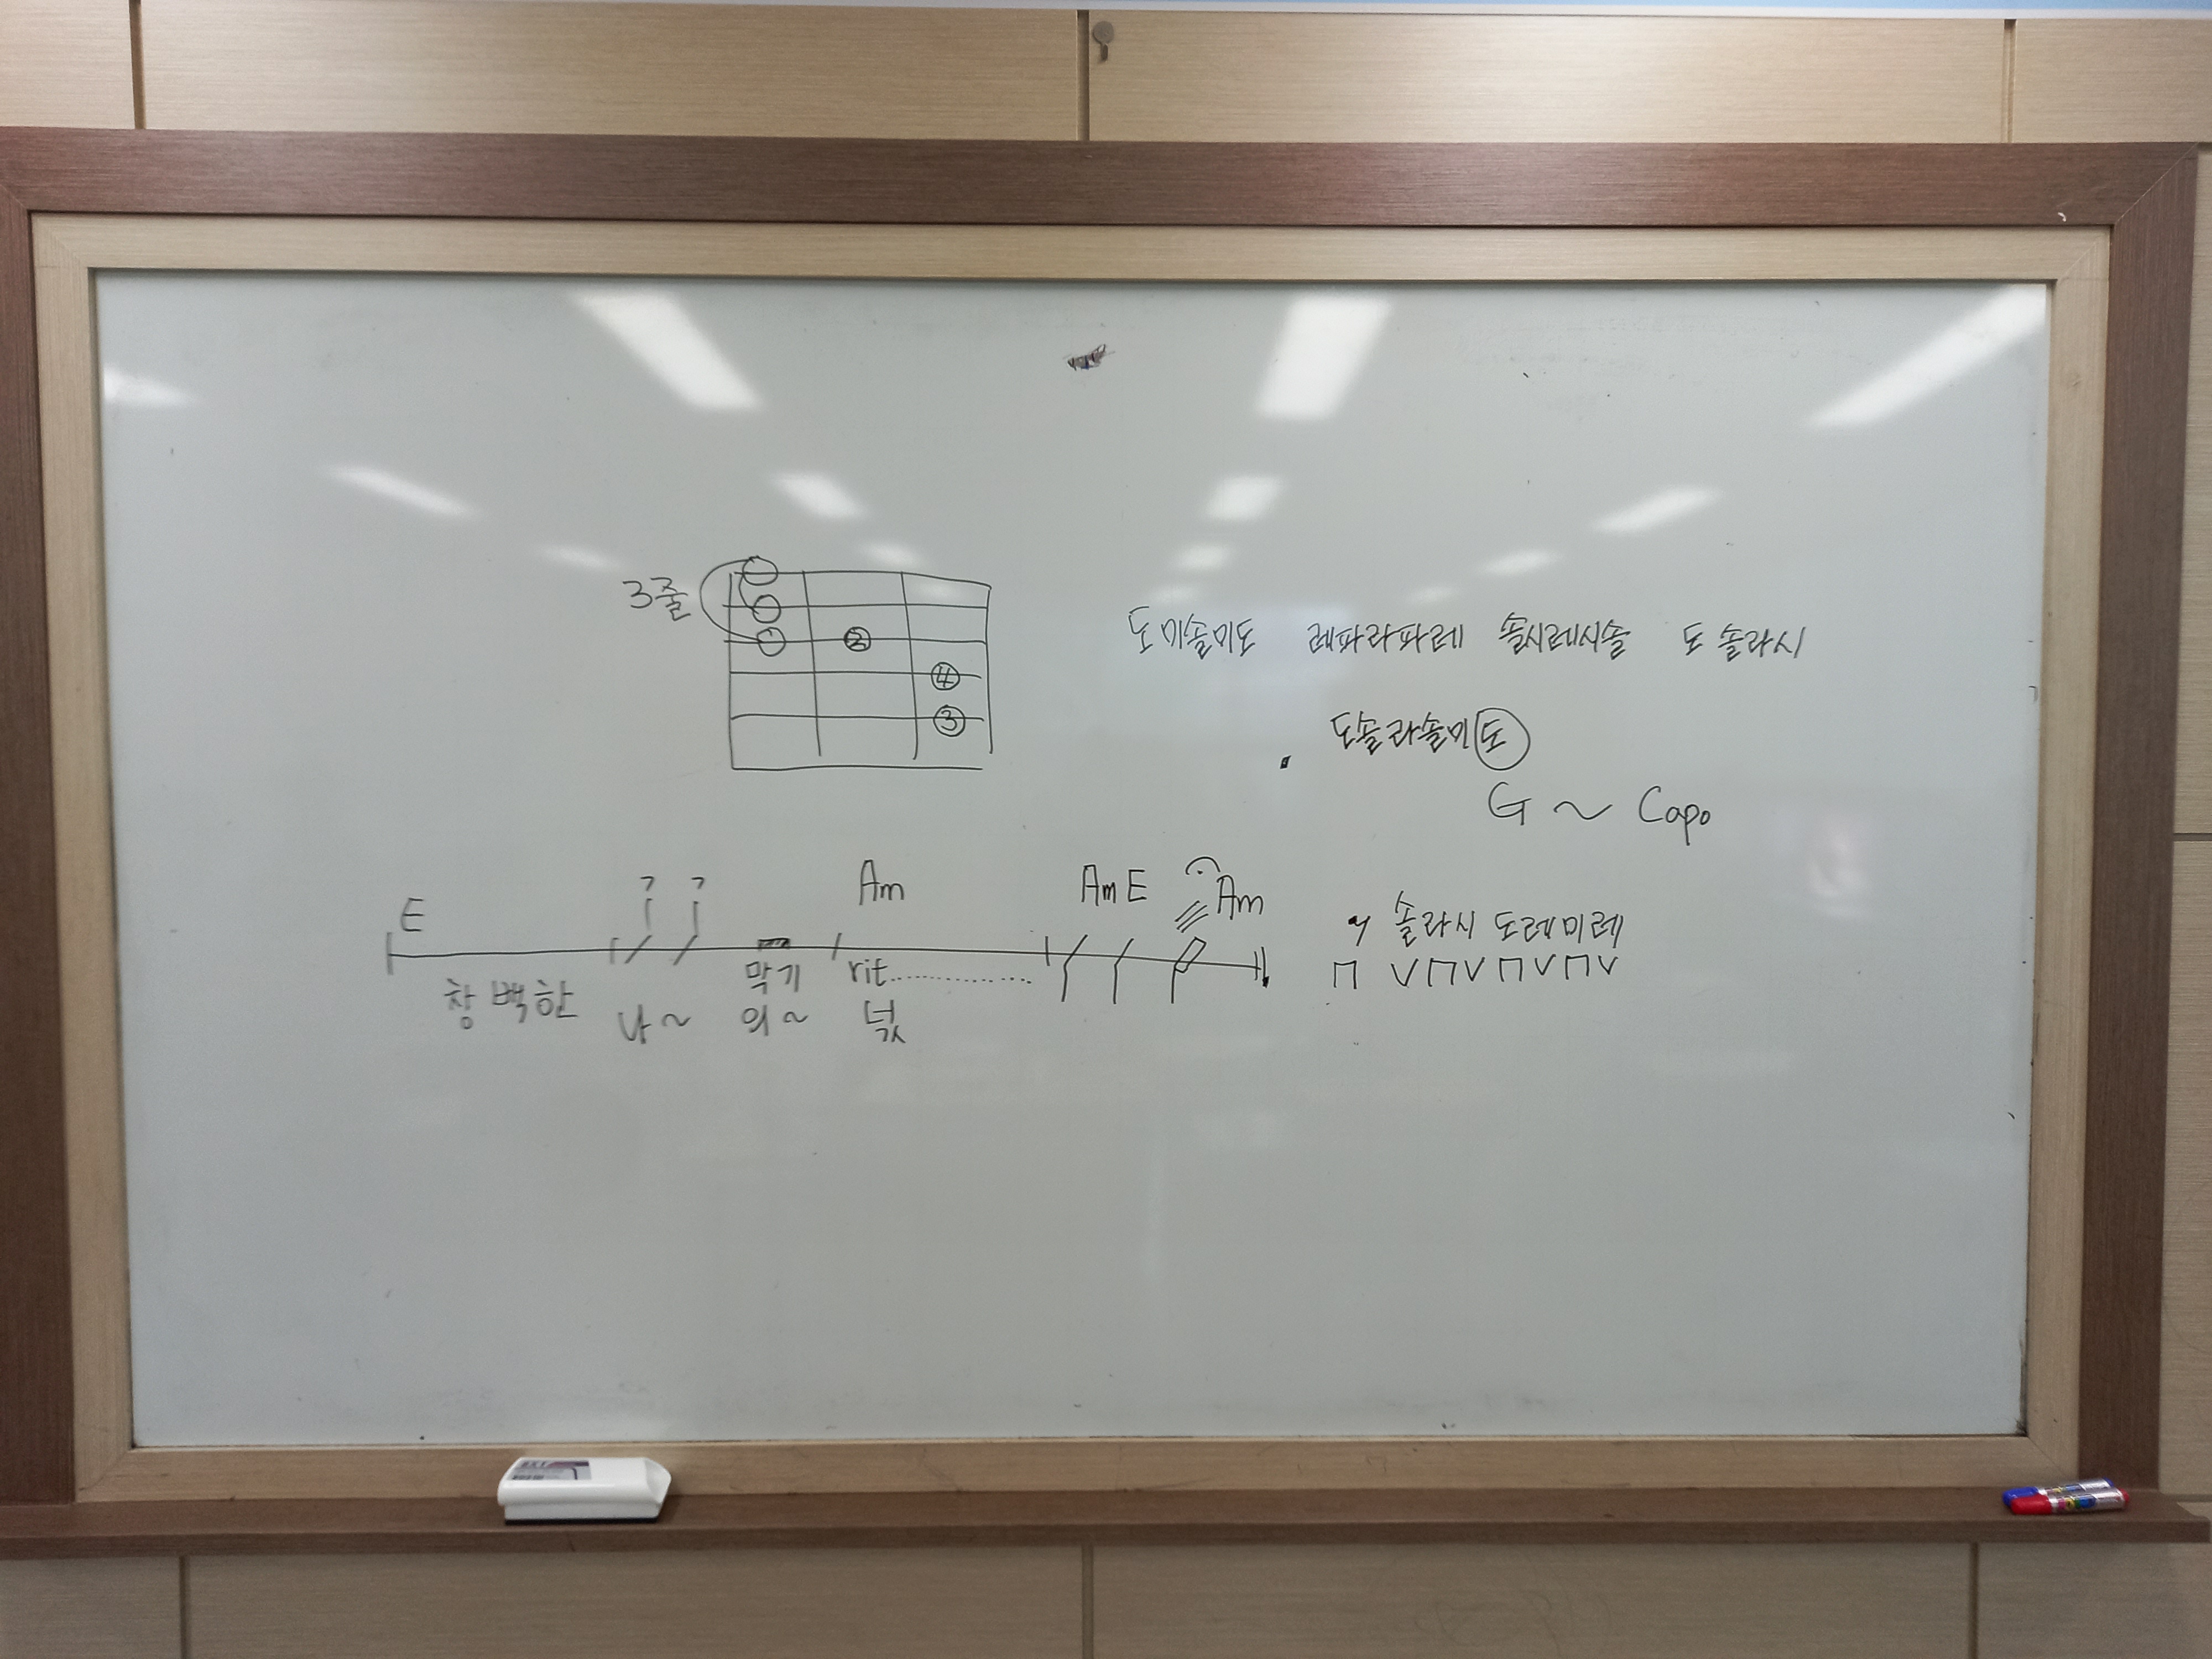 3줄
②
④
③
도미솔미도 레파라파레 솔시레시솔 도솔라시
도솔라솔미도
G ~ Capo
E Am Am E Am
막기 rit..............
창백한 나~ 의~ 넋
솔라시 도레미레